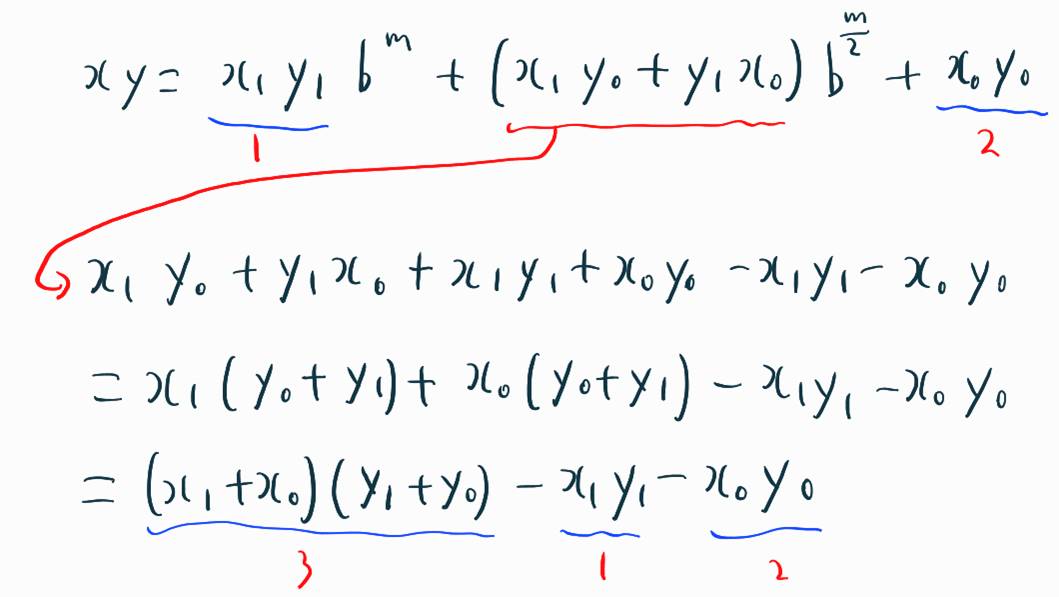 xy = x₁ y₁ b^m + (x₁ y₀ + y₁ x₀) b^(m/2) + x₀ y₀
1 2
x₁ y₀ + y₁ x₀ + x₁ y₁ + x₀ y₀ - x₁ y₁ - x₀ y₀
= x₁ (y₀ + y₁) + x₀ (y₀ + y₁) - x₁ y₁ - x₀ y₀
= (x₁ + x₀) (y₁ + y₀) - x₁ y₁ - x₀ y₀
3 1 2